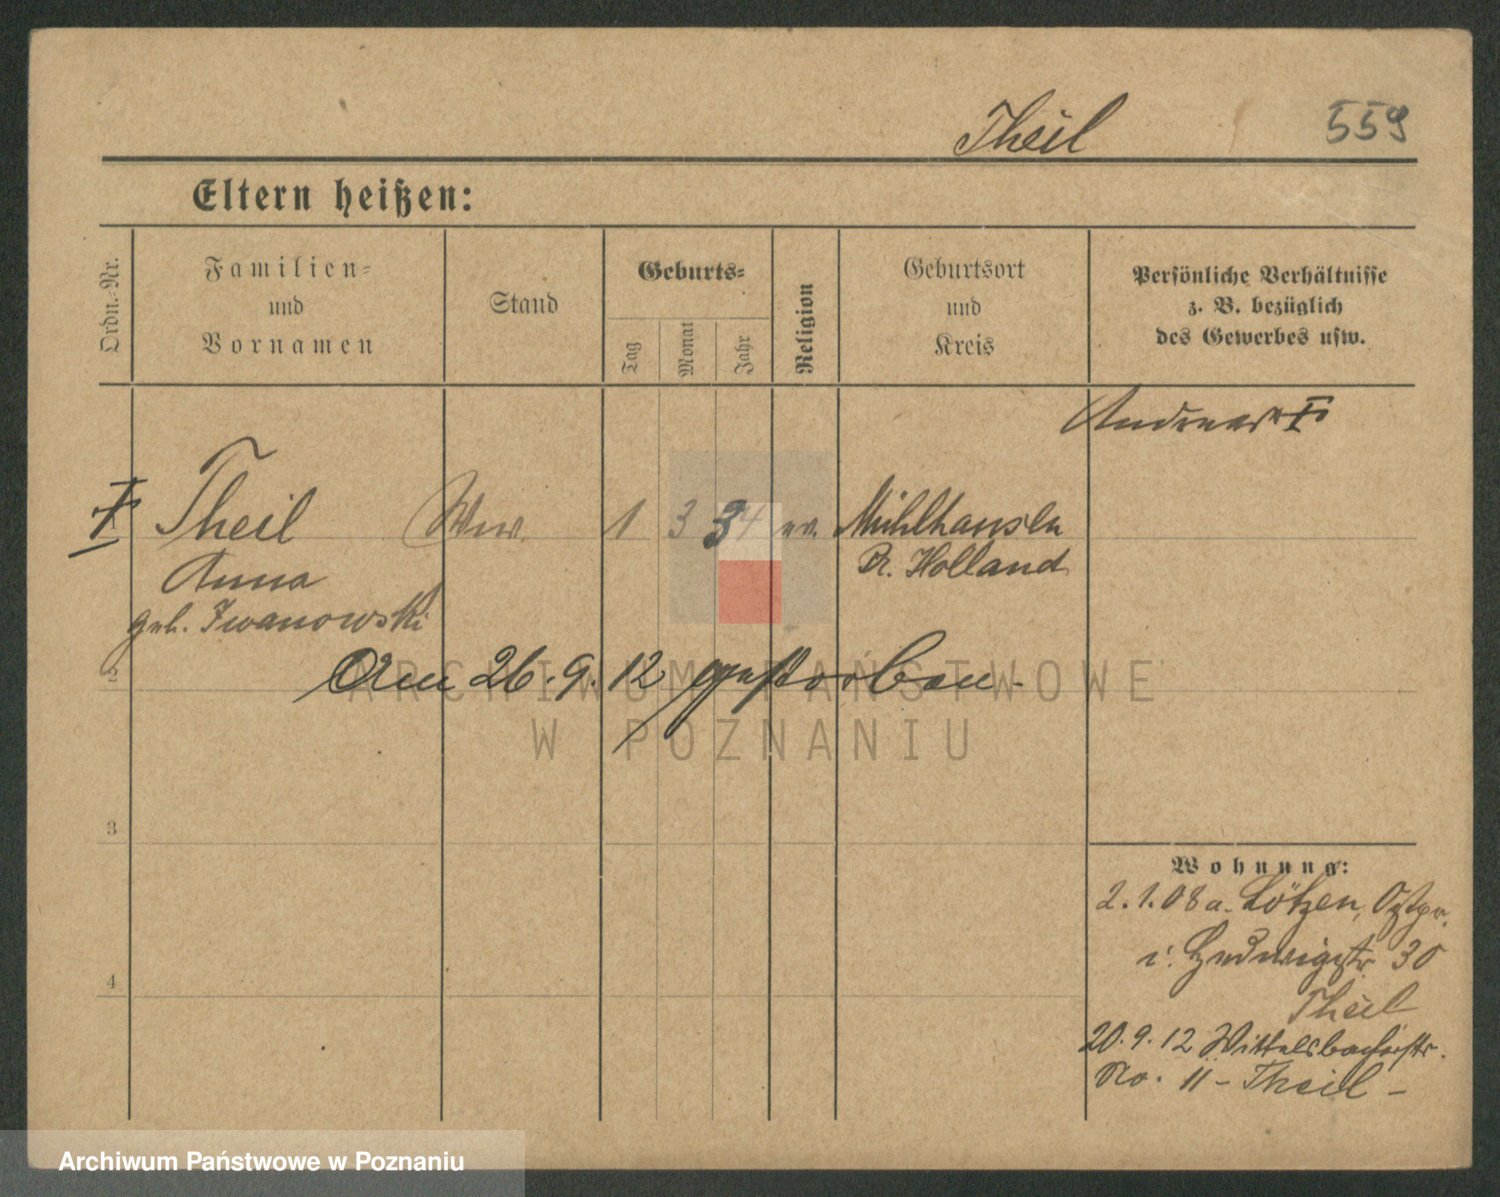 Theil 559
Eltern heißen:
Ordn.-Nr.
Familien-
und
Vornamen
Stand
Geburts-
Tag
Monat
Jahr
Religion
Geburtsort
und
Kreis
Persönliche Verhältnisse
z. B. bezüglich
des Gewerbes usw.
Andreas
1 Theil Ww. 1 3 34 ev. Mühlhausen
Anna Pr. Holland
geb. Iwanowski
2 Am 26.9.12 gestorben.
3
4
Wohnung:
2.1.08 a. Lötzen, Ostpr.
i. Hedwigstr. 30
Theil
20.9.12 Wittelsbacherstr.
No. 11 - Theil -
ARCHIWUM PAŃSTWOWE
W POZNANIU
Archiwum Państwowe w Poznaniu